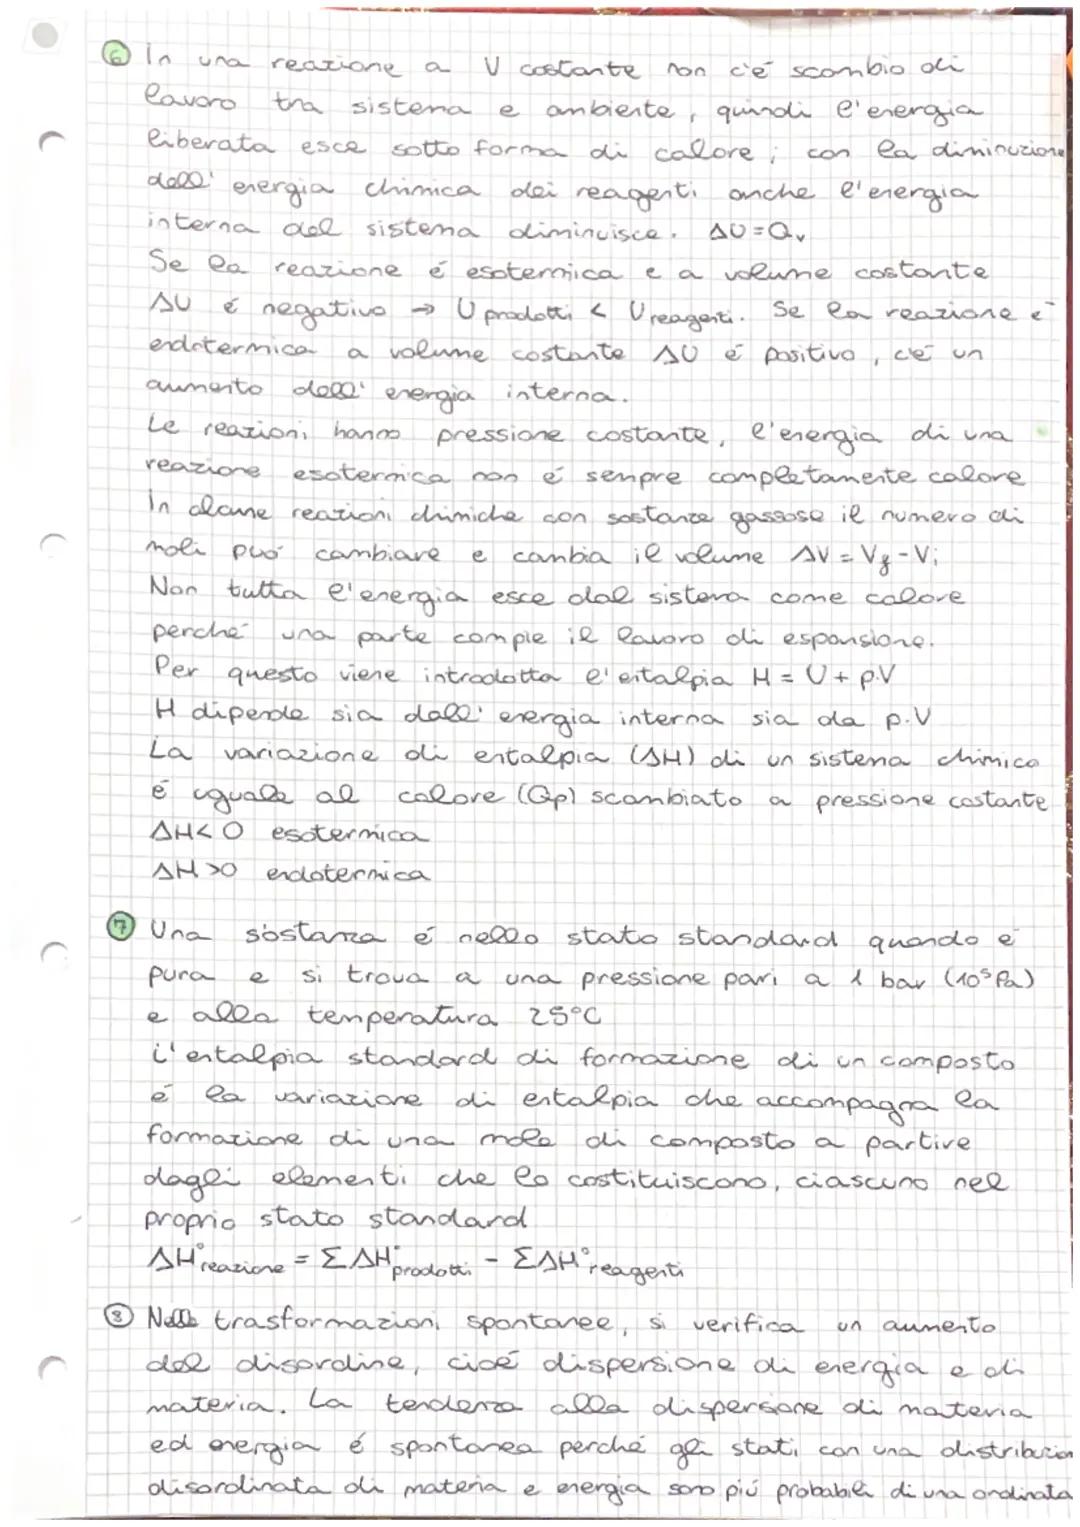 6 In una reazione a V costante non c'é scambio di
lavoro tra sistema e ambiente, quindi l'energia
liberata esce sotto forma di calore; con la diminuzione
dell' energia chimica dei reagenti anche l'energia
interna del sistema diminuisce. ΔU=Qv
Se la reazione é esotermica e a volume costante
ΔU é negativo → U prodotti < U reagenti. Se la reazione é
endotermica a volume costante ΔU é positivo, c'é un
aumento dell' energia interna.
Le reazioni hanno pressione costante, l'energia di una
reazione esotermica non é sempre completamente calore
In alcune reazioni chimiche con sostanze gassose il numero di
moli puó cambiare e cambia il volume ΔV = Vf - Vi
Non tutta l'energia esce dal sistema come calore
perché una parte compie il lavoro di espansione.
Per questo viene introdotta l'entalpia H = U + p.V
H dipende sia dall' energia interna sia da p.V
La variazione di entalpia (ΔH) di un sistema chimico
é uguale al calore (Qp) scambiato a pressione costante
ΔH<0 esotermica
ΔH>0 endotermica
7 Una sostanza é nello stato standard quando é
pura e si trova a una pressione pari a 1 bar (10⁵ Pa)
e alla temperatura 25°C
L'entalpia standard di formazione di un composto
é la variazione di entalpia che accompagna la
formazione di una mole di composto a partire
dagli elementi che lo costituiscono, ciascuno nel
proprio stato standard
ΔH°reazione = ΣΔH°prodotti - ΣΔH°reagenti
8 Nelle trasformazioni spontanee, si verifica un aumento
del disordine, cioé dispersione di energia e di
materia. La tendenza alla dispersione di materia
ed energia é spontanea perché gli stati con una distribuzion
disordinata di materia e energia sono piú probabili di una ordinata